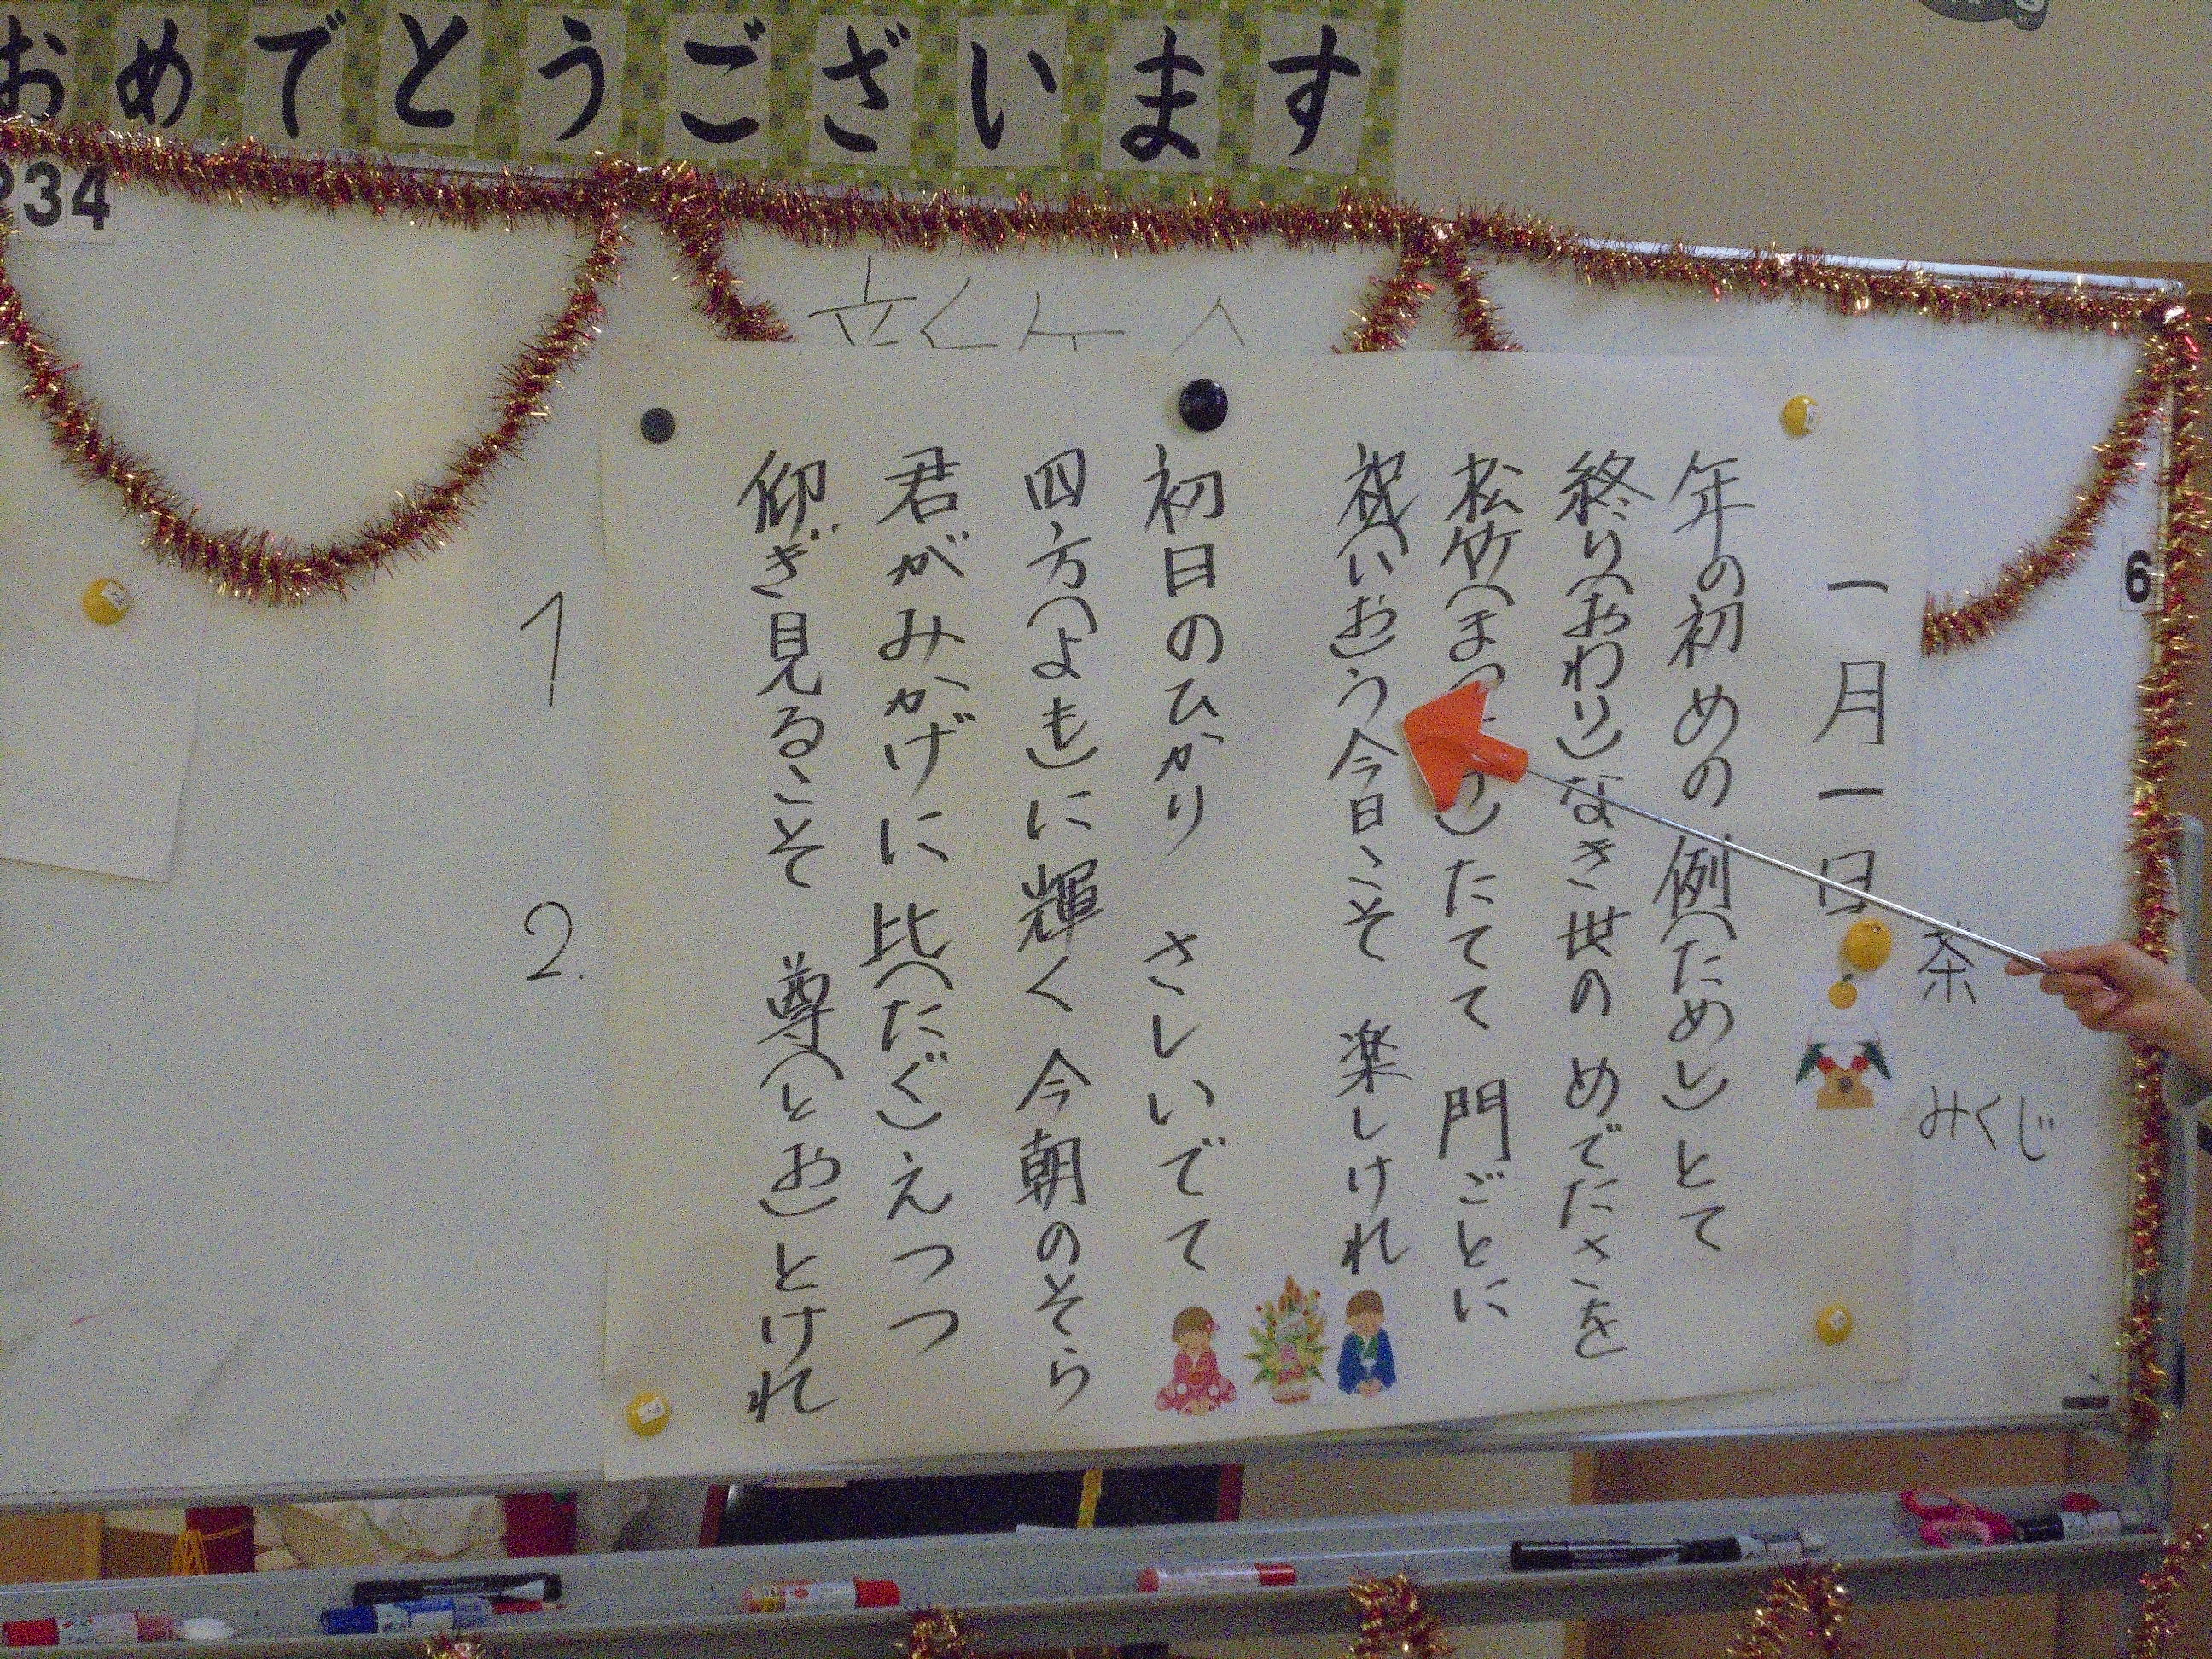 おめでとうございます
234
6
一月一日
年の初めの例(ためし)とて
終り(おわり)なき世の めでたさを
松竹(まつ たてて 門ごとに
祝(いお)う今日こそ 楽しけれ
初日のひかり さしいでて
四方(よも)に輝く 今朝のそら
君がみかげに 比(たぐ)えつつ
仰ぎ見るこそ 尊(とお)とけれ
茶
みくじ
1
2.